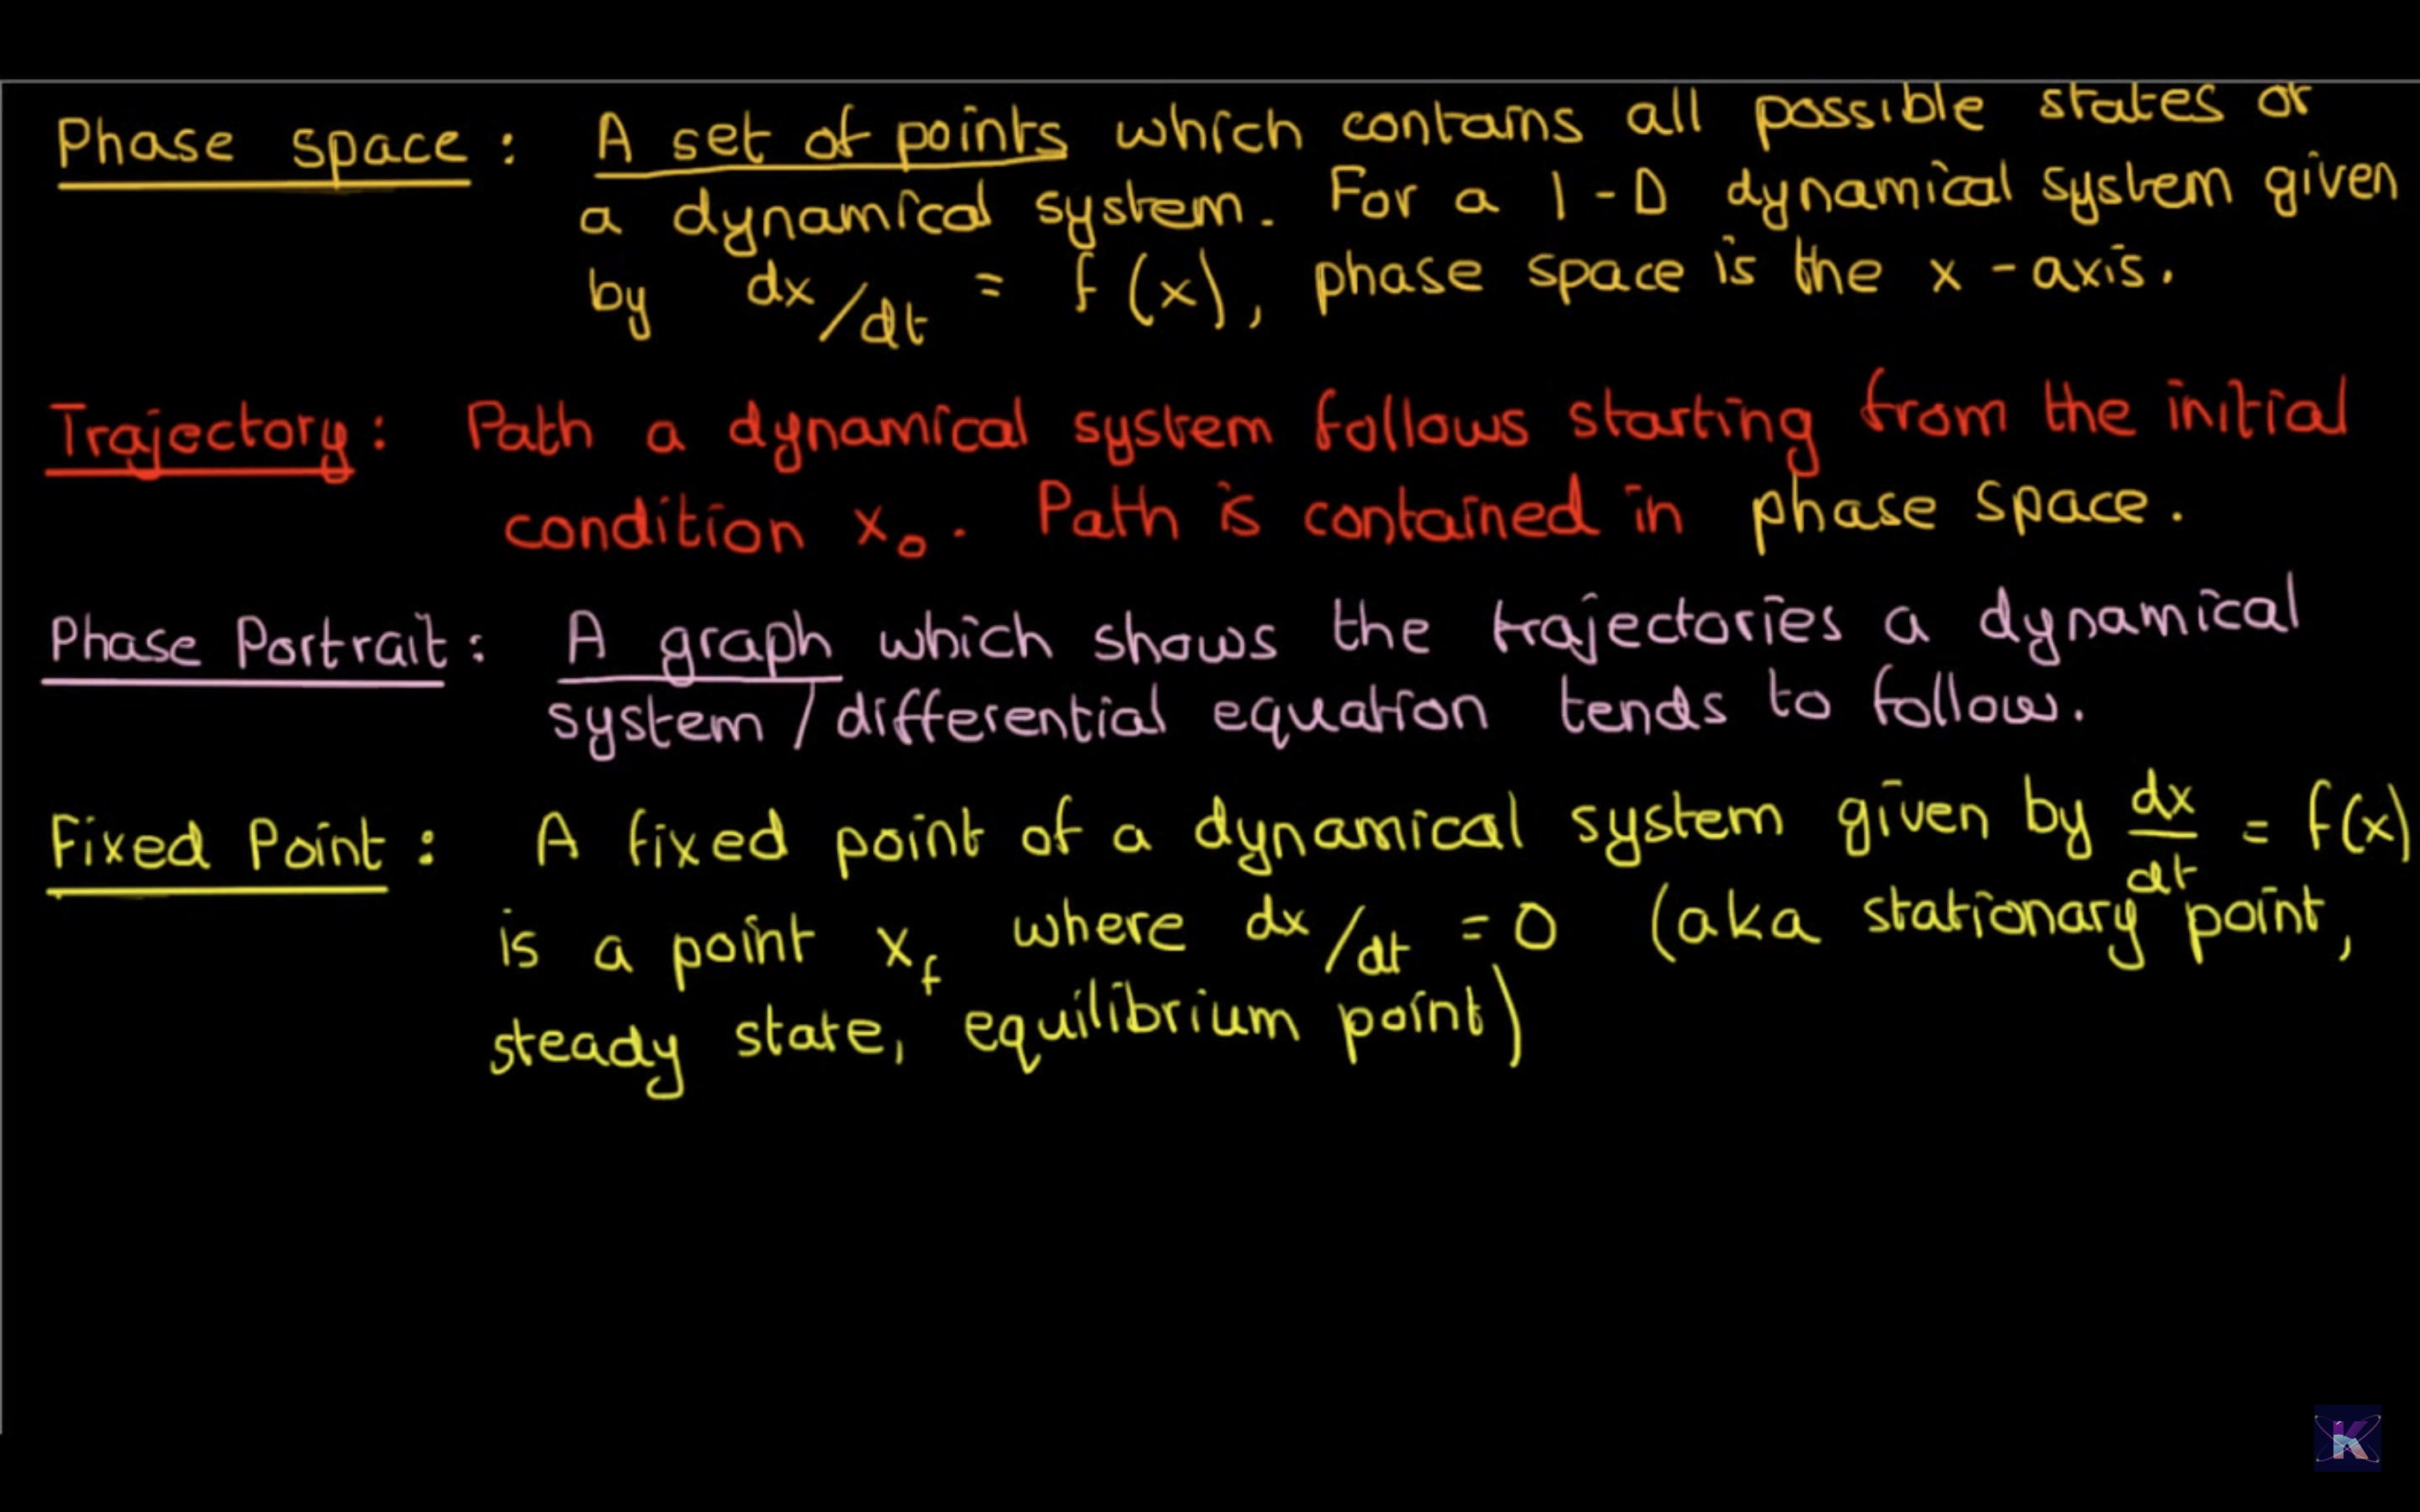 Phase space : A set of points which contains all possible states of
a dynamical system. For a 1-D dynamical system given
by dx/dt = f(x), phase space is the x-axis.
Trajectory : Path a dynamical system follows starting from the initial
condition x₀. Path is contained in phase space.
Phase Portrait : A graph which shows the trajectories a dynamical
system / differential equation tends to follow.
Fixed Point : A fixed point of a dynamical system given by dx/dt = f(x)
is a point x_f where dx/dt = 0 (aka stationary point,
steady state, equilibrium point)
K